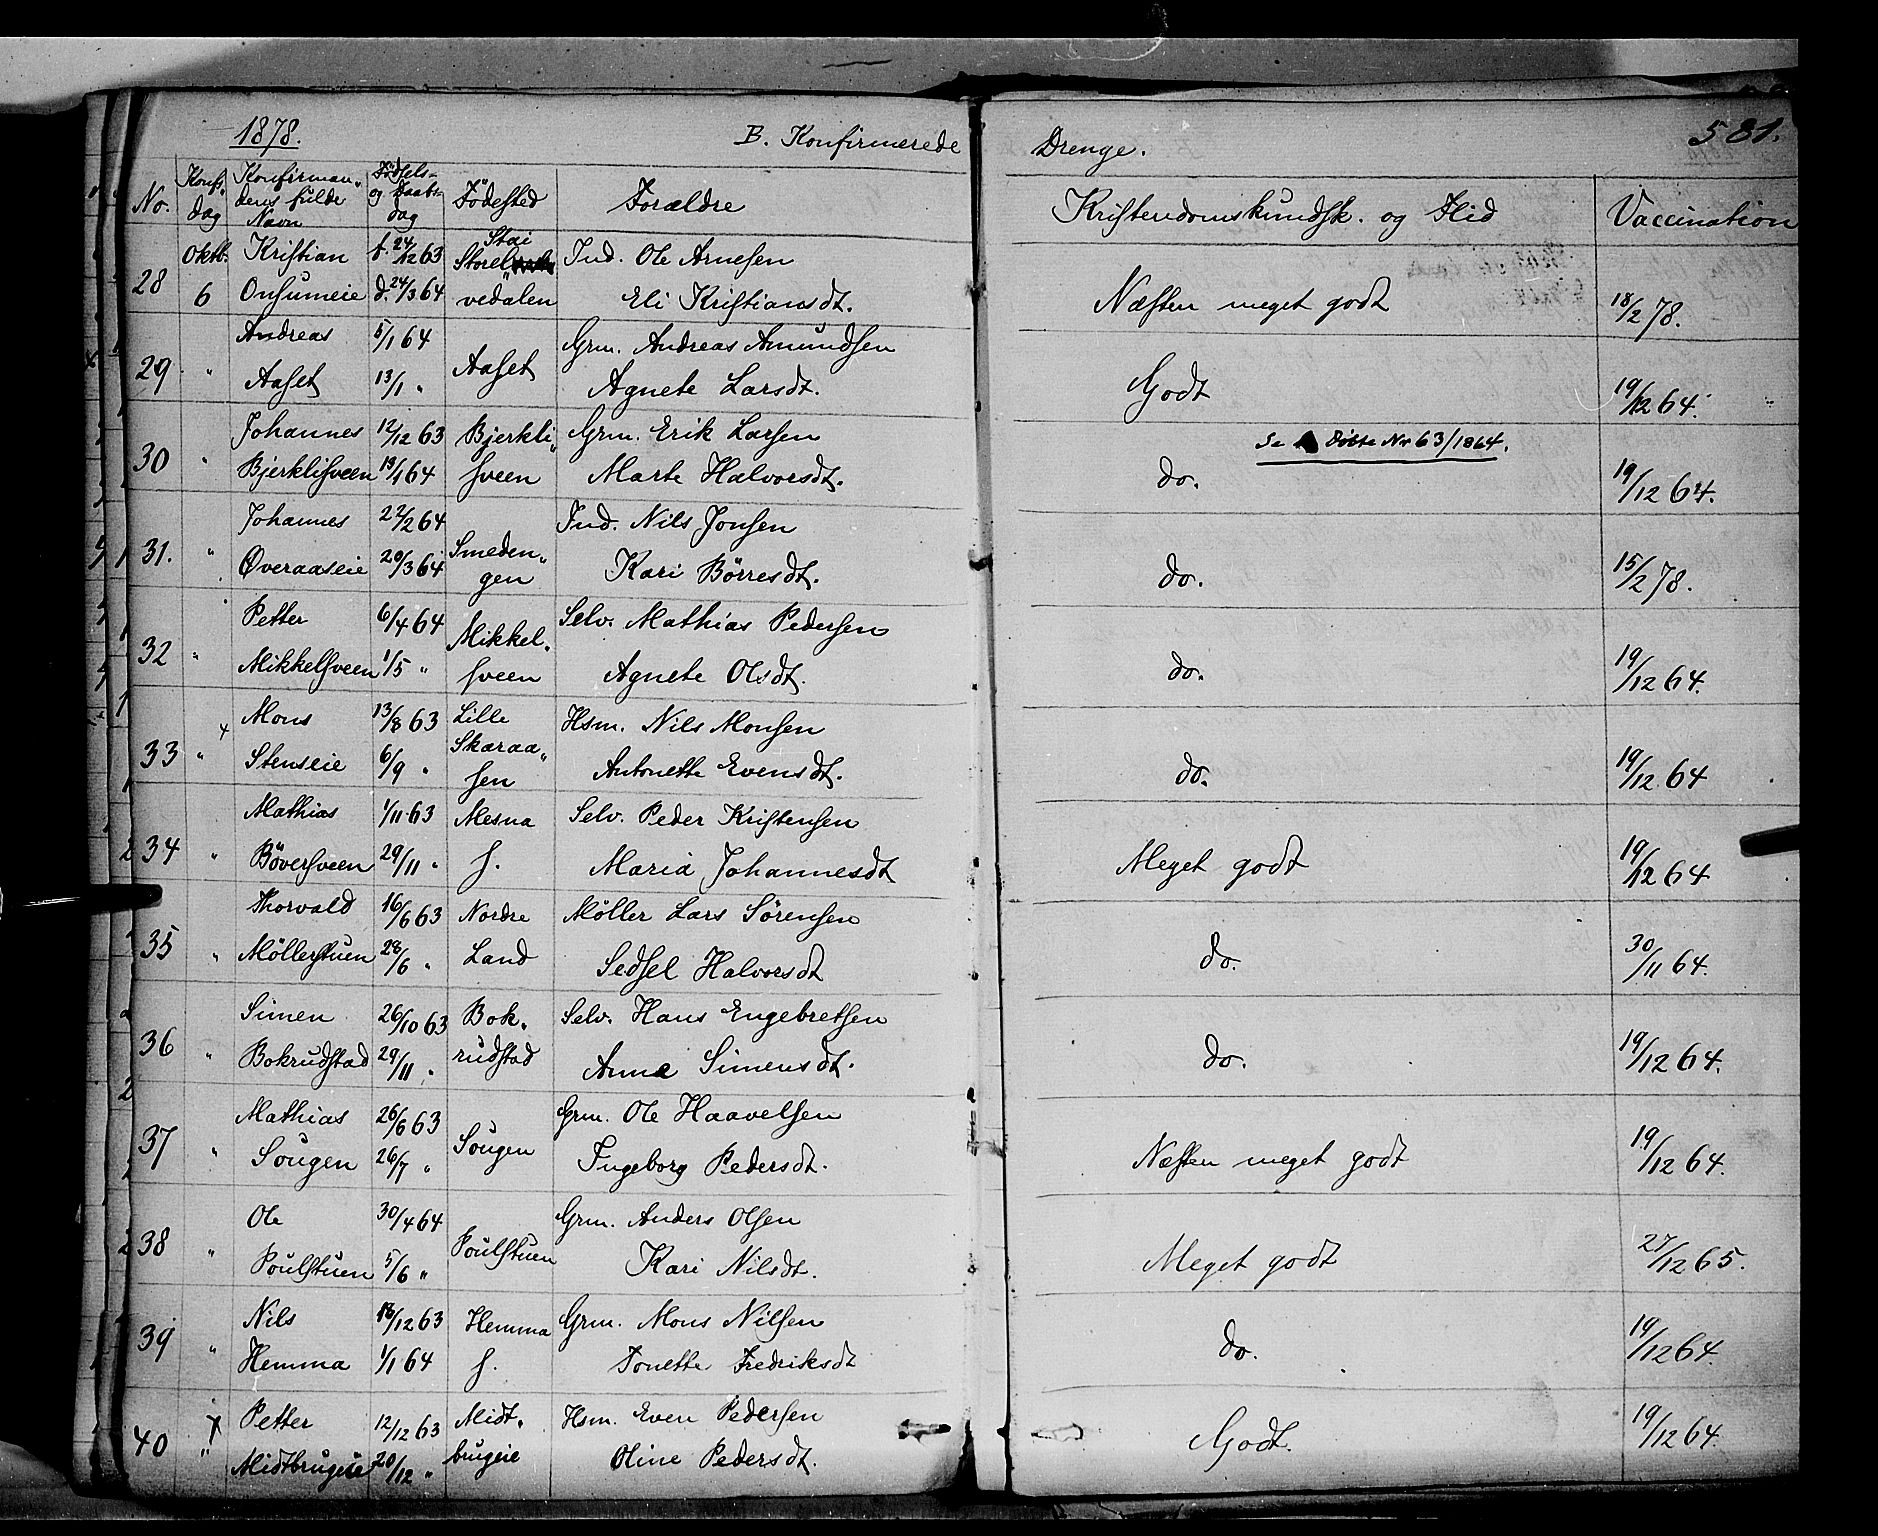 1878.
B. Konfirmerede Drenge.
581.
No. Konfs. dag Konfirman„dens fulde Navn Födsels- og Daabs-dag Födested Forældre Kristendomskundsk. og Flid Vaccination
28 Oktb. 6 Kristian Onsumeie f. 24/12 63 d. 24/3 64 Stai Storel„vedalen Ind. Ole Arnesen Eli Kristiansdt. Næsten meget godt 18/2 78.
29 " Andreas Aaset 5/1 64 13/1 " Aaset Grm. Andreas Amundsen Agnete Larsdt. Godt 19/12 64.
30 " Johannes Bjerklisveen 12/12 63 13/1 64 Bjerkli„sveen Grm. Erik Larsen Marte Halvorsdt. do. Se Döbte Nr 63/1864. 19/12 64.
31. " Johannes Överaaseie 22/2 64 20/3 64 Smeden„gen Ind. Nils Jonsen Kari Börresdt. do. 15/2 78.
32 " Petter Mikkelsveen 6/4 64 1/5 " Mikkel.sveen Selv. Mathias Pedersen Agnete Olsdt. do. 19/12 64.
33 " Mons Stenseie 13/8 63 6/9 " Lille Skaraa„sen Hsm. Nils Monsen Antonette Evensdt. do. 19/12 64
34 " Mathias Böversveen 1/11 63 29/11 " Mesna f. Selv. Peder Kristensen Maria Johannesdt Meget godt 19/12 64
35 " Thorvald Möllerstuen 16/6 63 28/6 " Nordre Land Möller Lars Sörensen Sedsel Halvorsdt do. 30/11 64.
36 " Simen Bokrudstad 26/10 63 29/11 " Bok.rudstad Selv. Hans Engebretsen Anne Simensdt. do. 19/12 64.
37 " Mathias Sougen 26/6 63 26/7 " Sougen Grm. Ole Haavelsen Ingeborg Pedersdt. Næsten meget godt 19/12 64.
38 " Ole Poulstuen 30/4 64 5/6 " Poulstuen Grm. Anders Olsen Kari Nilsdt. Meget godt 27/12 65.
39 " Nils Hemma 18/12 63 1/1 64 Hemma f. Grm. Mons Nilsen Tonette Fredriksdt do. 19/12 64.
40 " Petter Midtbrugeie 12/12 63 20/12 " Midt.brugeie Hsm. Even Pedersen Oline Pedersdt. Godt. 19/12 64.